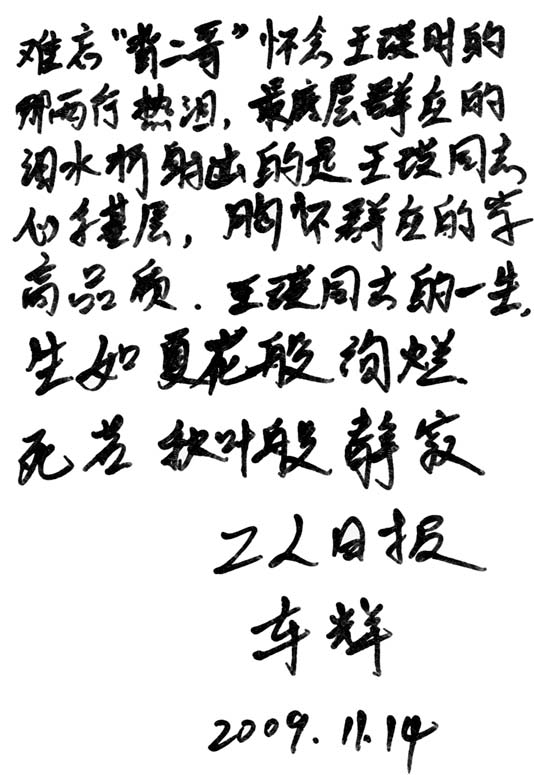 难忘“背二哥”怀念王瑛时的
那两行热泪，最底层群众的
泪水折射出的是王瑛同志
心系基层，胸怀群众的崇
高品质．王瑛同志的一生，
生如夏花般绚烂．
死若秋叶般静寂
工人日报
车辉
2009.11.14